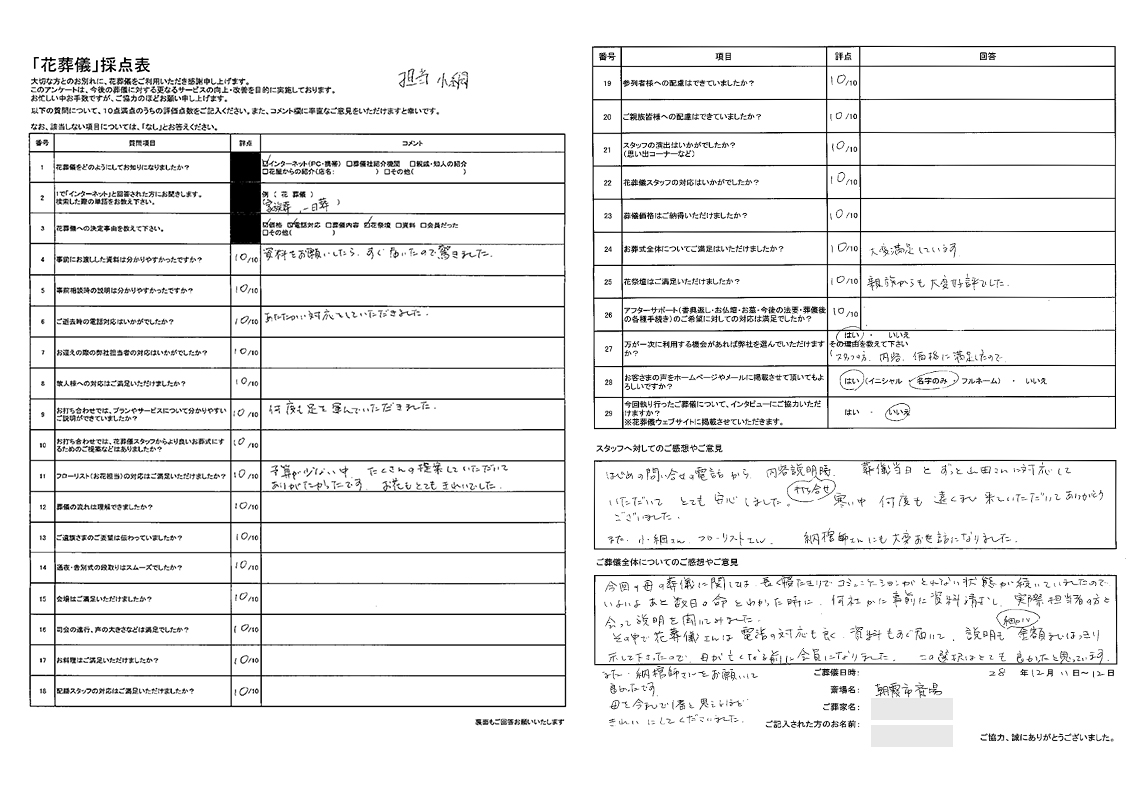 「花葬儀」採点表
担当 小綱
大切な方とのお別れに、花葬儀をご利用いただき感謝申し上げます。
このアンケートは、今後の葬儀に対する更なるサービスの向上・改善を目的に実施しております。
お忙しい中お手数ですが、ご協力のほどお願い申し上げます。
以下の質問について、10点満点のうちの評価点数をご記入ください。また、コメント欄に率直なご意見をいただけますと幸いです。
なお、該当しない項目については、「なし」とお答えください。
番号 質問項目 評点 コメント
1 花葬儀をどのようにしてお知りになりましたか? ☑インターネット(PC・携帯) □葬儀社紹介機関 □親戚・知人の紹介
□花屋からの紹介(店名: ) □その他( )
2 1で「インターネット」と回答された方にお聞きします。
検索した際の単語をお教え下さい。 例 ( 花 葬儀 )
(家族葬、一日葬 )
3 花葬儀への決定事由を教えて下さい。 ☑価格 ☑電話対応 □葬儀内容 ☑花祭壇 □資料 □会員だった
□その他( )
4 事前にお渡しした資料は分かりやすかったですか? 10/10 資料をお願いしたら、すぐ届いたので驚きました。
5 事前相談時の説明は分かりやすかったですか? 10/10
6 ご逝去時の電話対応はいかがでしたか? 10/10 あたたかい対応をしていただきました。
7 お迎えの際の弊社担当者の対応はいかがでしたか? 10/10
8 故人様への対応はご満足いただけましたか? 10/10
9 お打ち合わせでは、プランやサービスについて分かりやすいご説明ができていましたか? 10/10 何度も足を運んでいただきました。
10 お打ち合わせでは、花葬儀スタッフからより良いお葬式にするためのご提案などはありましたか? 10/10
11 フローリスト(お花担当)の対応はご満足いただけましたか? 10/10 予算が少ない中、たくさんの提案していただいて
ありがたかったです。お花もとてもきれいでした。
12 葬儀の流れは理解できましたか? 10/10
13 ご遺族さまのご要望は伝わっていましたか? 10/10
14 通夜・告別式の段取りはスムーズでしたか? 10/10
15 会場はご満足いただけましたか? 10/10
16 司会の進行、声の大きさなどは満足でしたか? 10/10
17 お料理はご満足いただけましたか? 10/10
18 配膳スタッフの対応はご満足いただけましたか? 10/10
裏面もご回答お願いいたします
番号 項目 評点 回答
19 参列者様への配慮はできていましたか? 10/10
20 ご親族皆様への配慮はできていましたか? 10/10
21 スタッフの演出はいかがでしたか?
(思い出コーナーなど) 10/10
22 花葬儀スタッフの対応はいかがでしたか? 10/10
23 葬儀価格はご納得いただけましたか? 10/10
24 お葬式全体についてご満足はいただけましたか? 10/10 大変満足しています
25 花祭壇はご満足いただけましたか? 10/10 親族からも大変好評でした。
26 アフターサポート(香典返し・お仏壇・お墓・今後の法要・葬儀後の各種手続き)のご希望に対しての対応は満足でしたか? 10/10
27 万が一次に利用する機会があれば弊社を選んでいただけますか? はい ・ いいえ
その理由を教えて下さい
(スタッフの方、内容、価格に満足したので
28 お客さまの声をホームページやメールに掲載させて頂いてもよろしいですか? はい (イニシャル・名字のみ・フルネーム) ・ いいえ
29 今回執り行ったご葬儀について、インタビューにご協力いただけますか?
※花葬儀ウェブサイトに掲載させていただきます。 はい ・ いいえ
スタッフへ対してのご感想やご意見
はじめの問い合せの電話から、内容説明時、葬儀当日とずっと山田さんに対応して
いただいて とても安心しました。打ち合せ 寒い中 何度も遠くまで来ていただいてありがとう
ございました。
また、小綱さん、フローリストさん、納棺師さんにも大変お世話になりました。
ご葬儀全体についてのご感想やご意見
今回の母の葬儀に関しては、長く寝たきりでコミュニケーションがとれない状態が続いていましたので
いよいよあと数日の命とわかった時に、何社かに事前に資料請求し、実際担当者の方と
会って説明を聞いてみました。
その中で花葬儀さんは電話の対応も良く、資料もすぐ届いて、説明も 細かく 金額まではっきり
示して下さったので、母が亡くなる前に会員になりました。この選択はとても良かったと思っています。
また、納棺師さんをお願いして
良かったです。
母を今までで1番と思えるほど
きれいにしてくださいました。
ご葬儀日時: 28 年 12月 11日~12日
斎場名: 朝霞市斎場
ご葬家名:
ご記入された方のお名前:
ご協力、誠にありがとうございました。